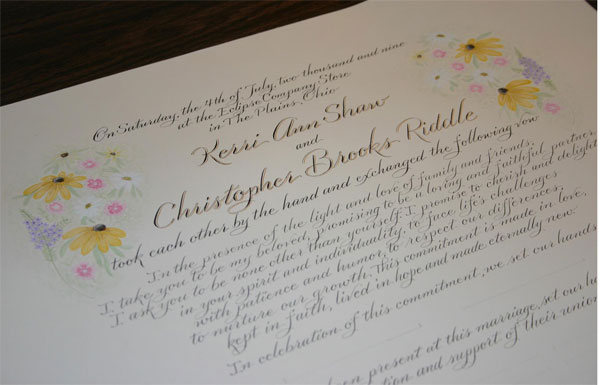 On Saturday, the 4th of July, two thousand and nine
at the Eclipse Company Store
in The Plains, Ohio
Kerri Ann Shaw
and
Christopher Brooks Riddle
took each other by the hand and exchanged the following vow
In the presence of the light and love of family and friends,
I take you to be my beloved, promising to be a loving and faithful partner.
I ask you to be none other than yourself. I promise to cherish and delight
in your spirit and individuality, to face life's challenges
with patience and humor, to respect our differences
to nurture our growth. This commitment is made in love,
kept in faith, lived in hope and made eternally new.
In celebration of this commitment, we set our hands
been present at this marriage, set our
and support of their union